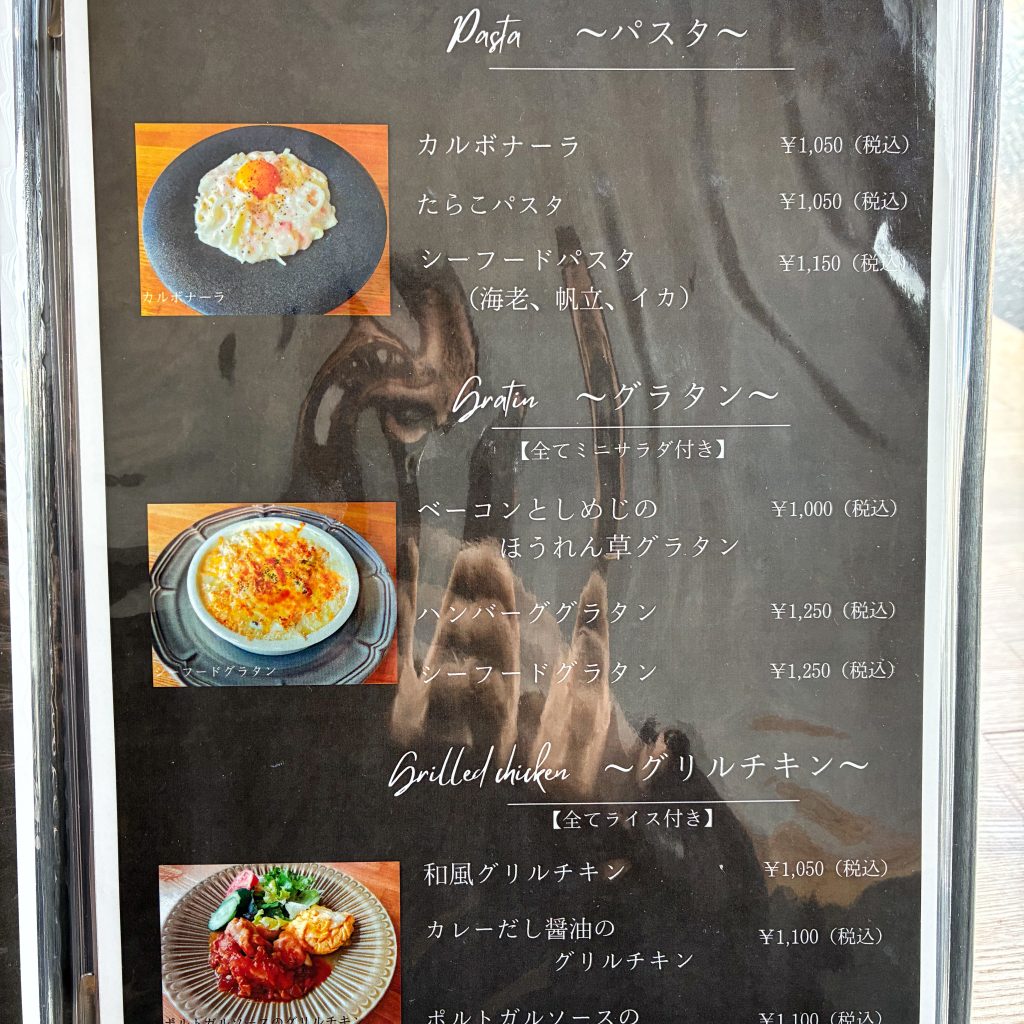 Pasta 〜パスタ〜
カルボナーラ ¥1,050（税込）
たらこパスタ ¥1,050（税込）
シーフードパスタ ¥1,150（税込）
（海老、帆立、イカ）
カルボナーラ
Gratin 〜グラタン〜
【全てミニサラダ付き】
ベーコンとしめじの ¥1,000（税込）
ほうれん草グラタン
ハンバーググラタン ¥1,250（税込）
シーフードグラタン ¥1,250（税込）
フードグラタン
Grilled chicken 〜グリルチキン〜
【全てライス付き】
和風グリルチキン ¥1,050（税込）
カレーだし醤油の ¥1,100（税込）
グリルチキン
ポルトガルソースの ¥1,100（税込）
ポルトガルソースのグリルチキン